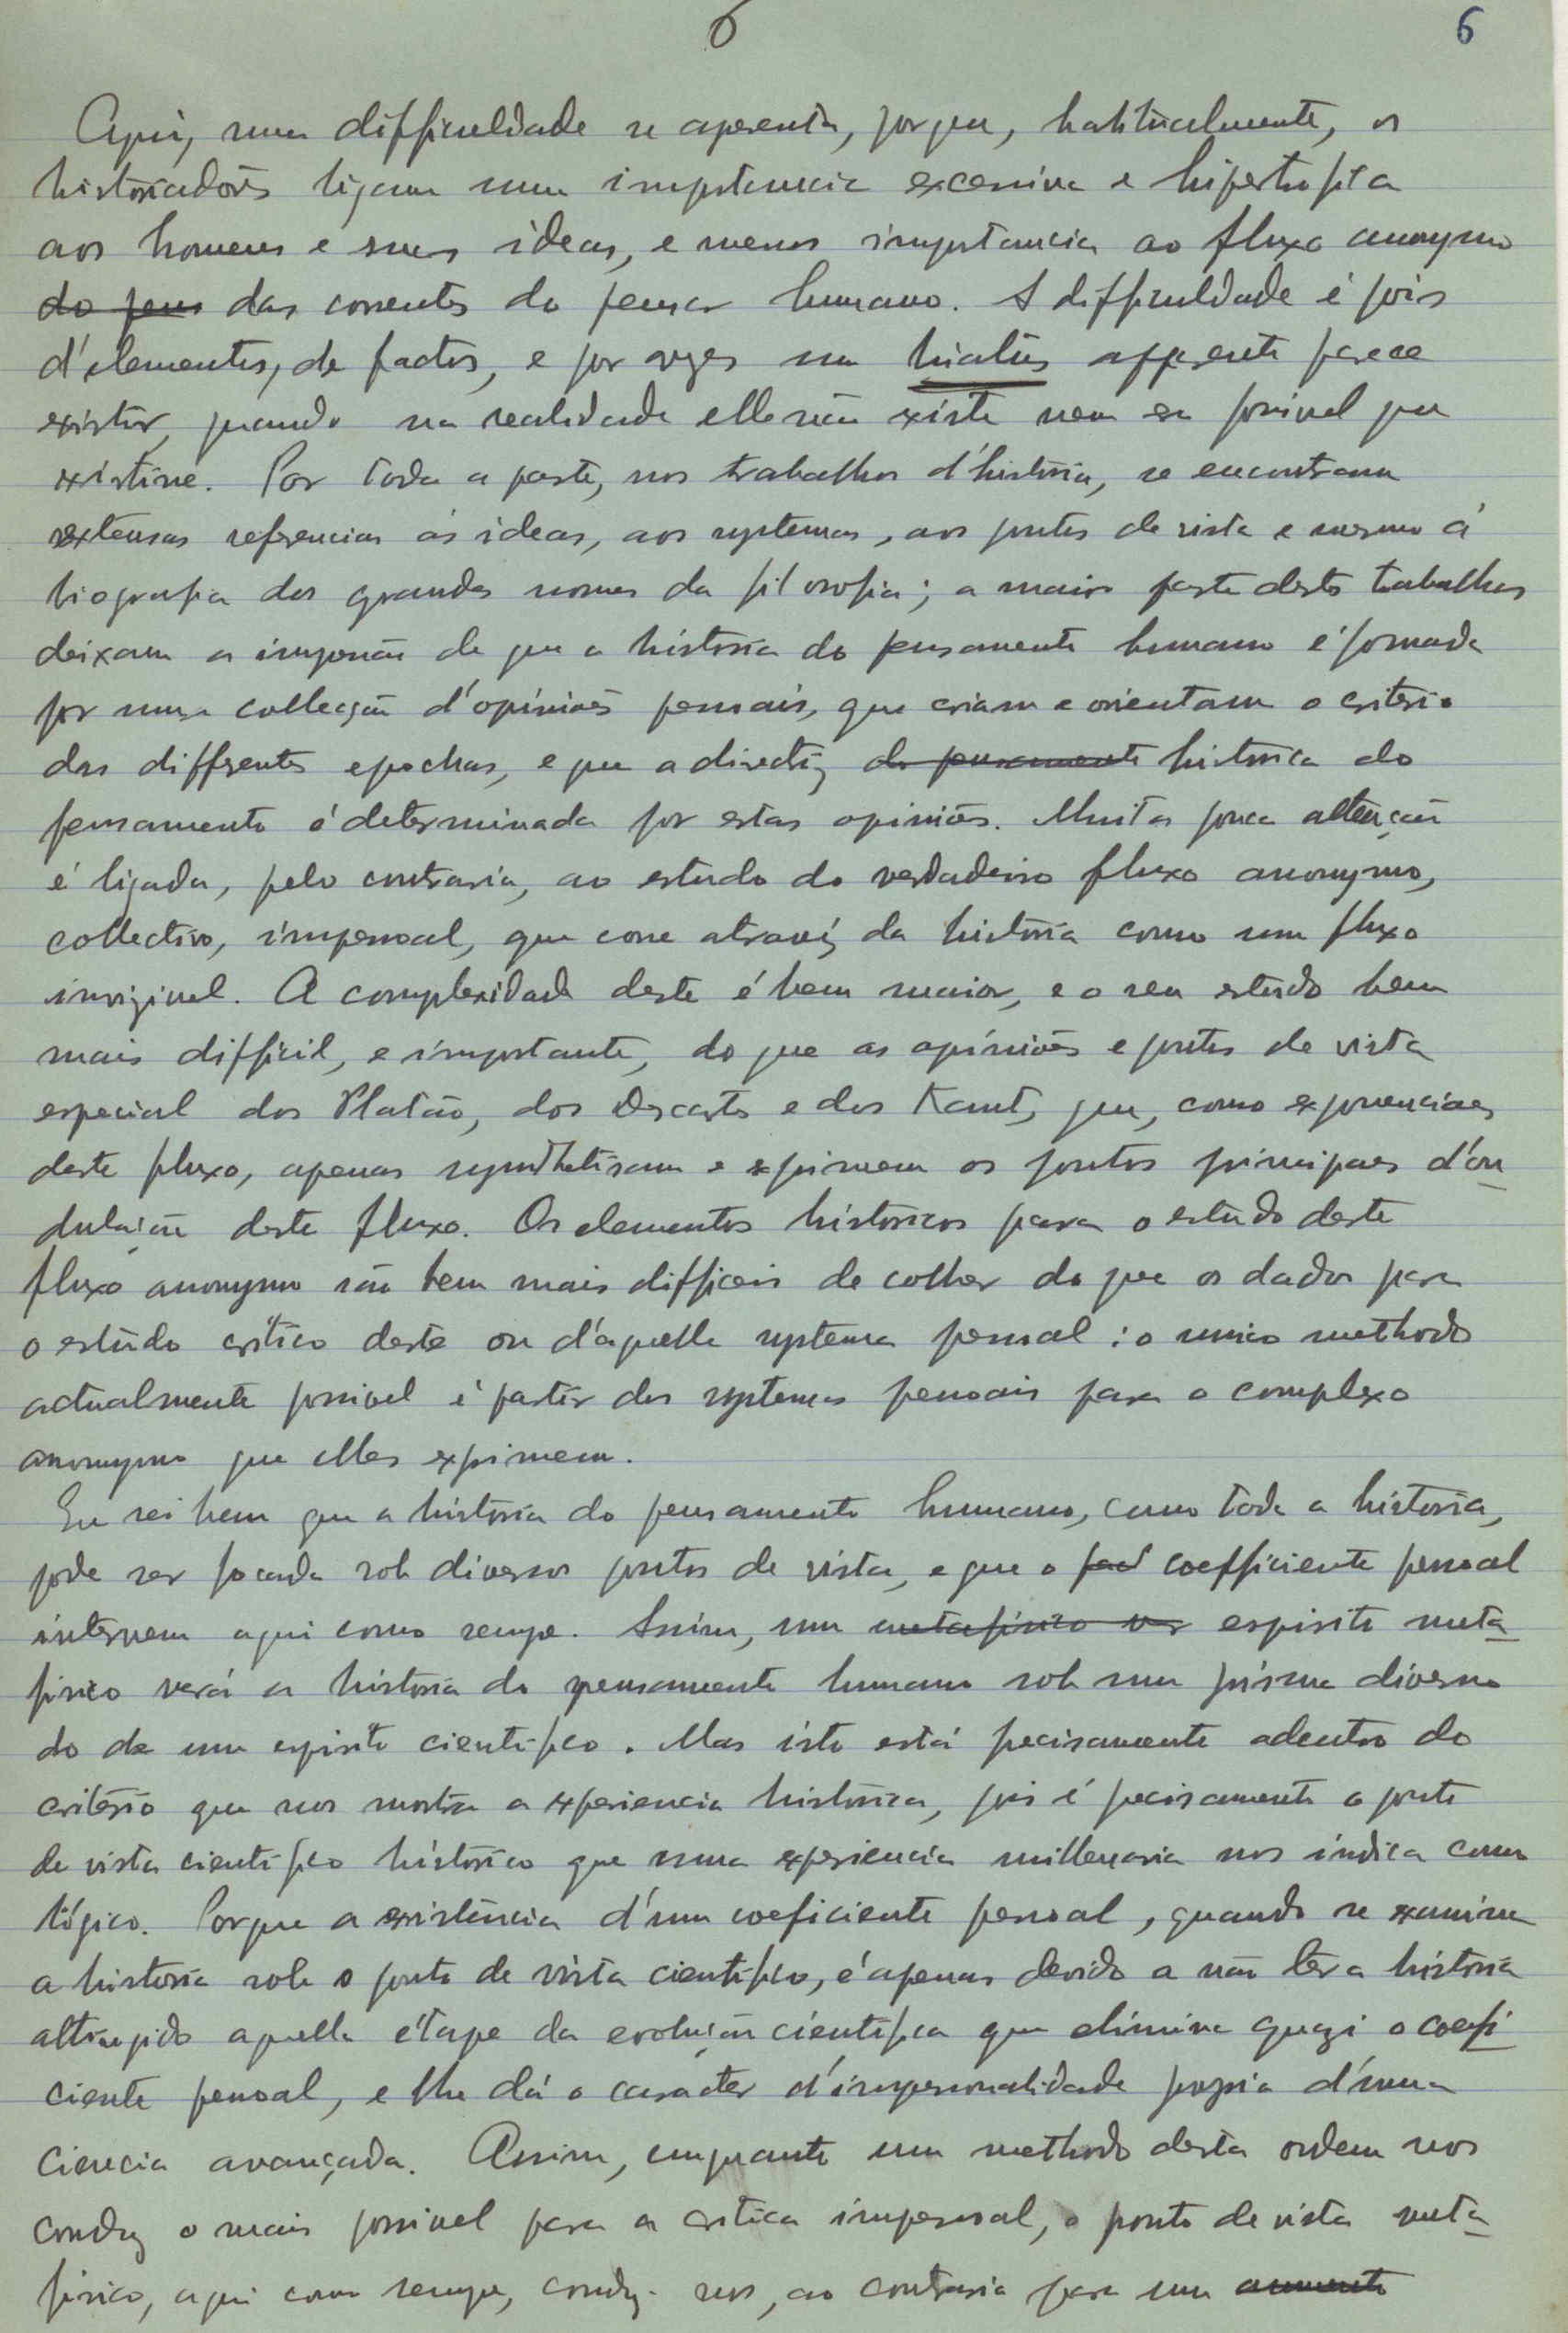 6 6
Aqui, uma difficuldade se apresenta, porque, habitualmente, os
historiadores ligam uma importancia excessiva e hipertrofica
aos homens e suas ideas, e menos importancia ao fluxo anonymo
do pens das correntes do pensar humano. A difficuldade é pois
d'elementos, de factos, e por vezes um hiatus apparente parece
existir, quando na realidade elle não existe nem era possivel que
existisse. Por toda a parte, nos trabalhos d'história, se encontram
extensas referencias ás ideas, aos systemas, aos pontos de vista e mesmo á
biografia dos grandes nomes da filosofia; a maior parte destes trabalhos
deixam a impressão de que a história do pensamento humano é formada
por uma collecção d'opiniões pessoais, que criam e orientam o criterio
das differentes epochas, e que a directriz do pensamento historica do
pensamento é determinada por estas opiniões. Muita pouca attenção
é ligada, pelo contrario, ao estudo do verdadeiro fluxo anonymo,
collectivo, impessoal, que corre através da história como um fluxo
invizivel. A complexidade deste é bem maior, e o seu estudo bem
mais difficil, e importante, do que as opiniões e pontos de vista
especial dos Platão, dos Descartes e dos Kant, que, como exponenciaes
deste fluxo, apenas synthetisam e exprimem os pontos principaes d'on
dulação deste fluxo. Os elementos históricos para o estudo deste
fluxo anonymo são bem mais difficeis de colher do que os dados para
o estudo critico deste ou d'aquelle systema pessoal: o unico methodo
actualmente possivel é partir dos systemas pessoais para o complexo
anonymo que elles exprimem.
Eu sei bem que a história do pensamento humano, como toda a história,
pode ser focada sob diversos pontos de vista, e que o coefficiente pessoal
intervem aqui como sempre. Assim, um metafísico ver espirito meta
físico verá a história do pensamento humano sob um prisma diverso
do de um espirito cientifico. Mas isto está precisamente adentro do
critério que nos mostra a experiencia histórica, pois é precisamente o ponto
de vista cientifico histórico que uma experiencia millenaria nos indica como
lógico. Porque a existência d'um coeficiente pessoal, quando se examina
a história sob o ponto de vista cientifico, é apenas devido a não ter a história
attingido aquella étape da evolução cientifica que elimina quazi o coefi
ciente pessoal, e lhe dá o caracter d'impersonalidade propria d'uma
ciencia avançada. Assim, emquanto um methodo desta ordem nos
conduz o mais possivel para a critica impessoal, o ponto de vista meta
físico, aqui como sempre, conduz-nos, ao contrario para um aumento